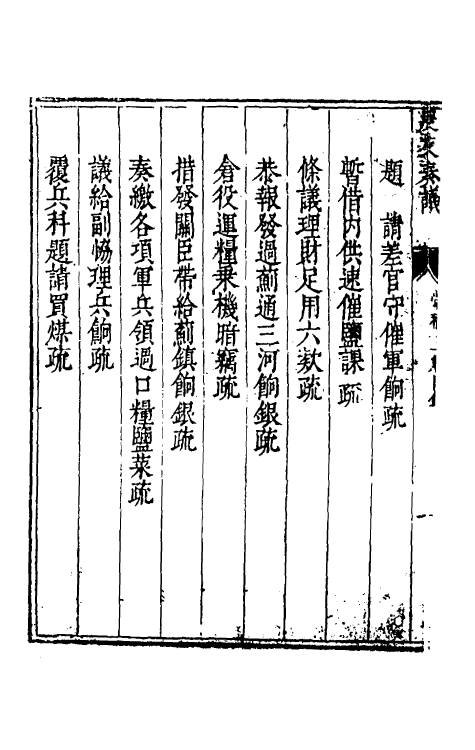 題　請差官守催軍餉疏
暫借內供速催鹽課疏
條議理財足用六欵疏
恭報發過薊通三河餉銀疏
倉役運糧乗機暗竊疏
措發關臣帶給薊鎮餉銀疏
奏繳各項軍兵領過口糧鹽菜疏
議給副恊理兵餉疏
覆兵科題請買煤疏